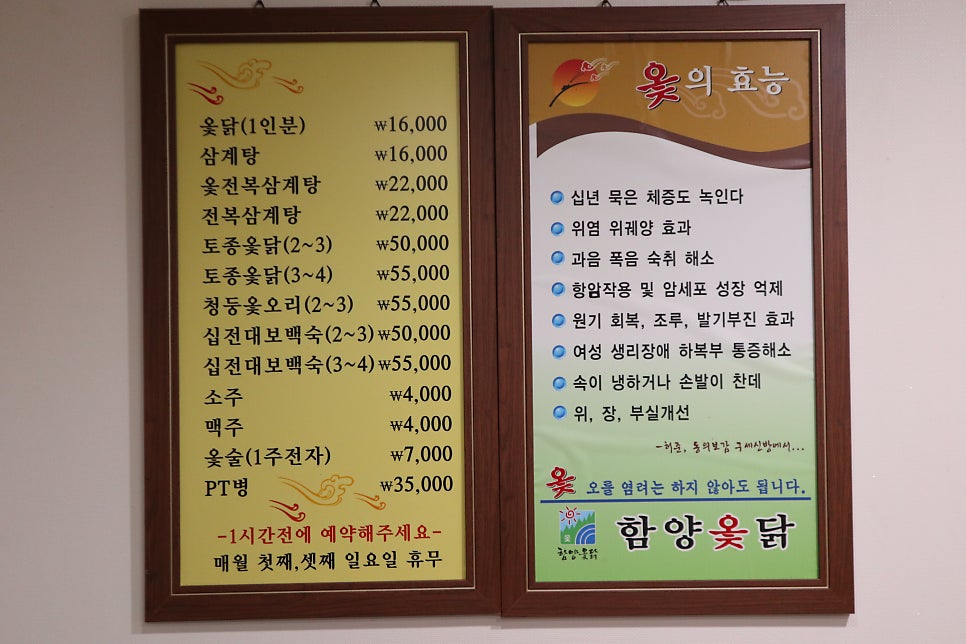 옻닭(1인분) ₩16,000
삼계탕 ₩16,000
옻전복삼계탕 ₩22,000
전복삼계탕 ₩22,000
토종옻닭(2~3) ₩50,000
토종옻닭(3~4) ₩55,000
청둥옻오리(2~3) ₩55,000
십전대보백숙(2~3) ₩50,000
십전대보백숙(3~4) ₩55,000
소주 ₩4,000
맥주 ₩4,000
옻술(1주전자) ₩7,000
PT병 ₩35,000
-1시간전에 예약해주세요-
매월 첫째,셋째 일요일 휴무
옻의 효능
십년 묵은 체증도 녹인다
위염 위궤양 효과
과음 폭음 숙취 해소
항암작용 및 암세포 성장 억제
원기 회복, 조루, 발기부진 효과
여성 생리장애 하복부 통증해소
속이 냉하거나 손발이 찬데
위, 장, 부실개선
-허준, 동의보감 구세신방에서...
옻 오를 염려는 하지 않아도 됩니다.
옻
함양옻닭
함양옻닭